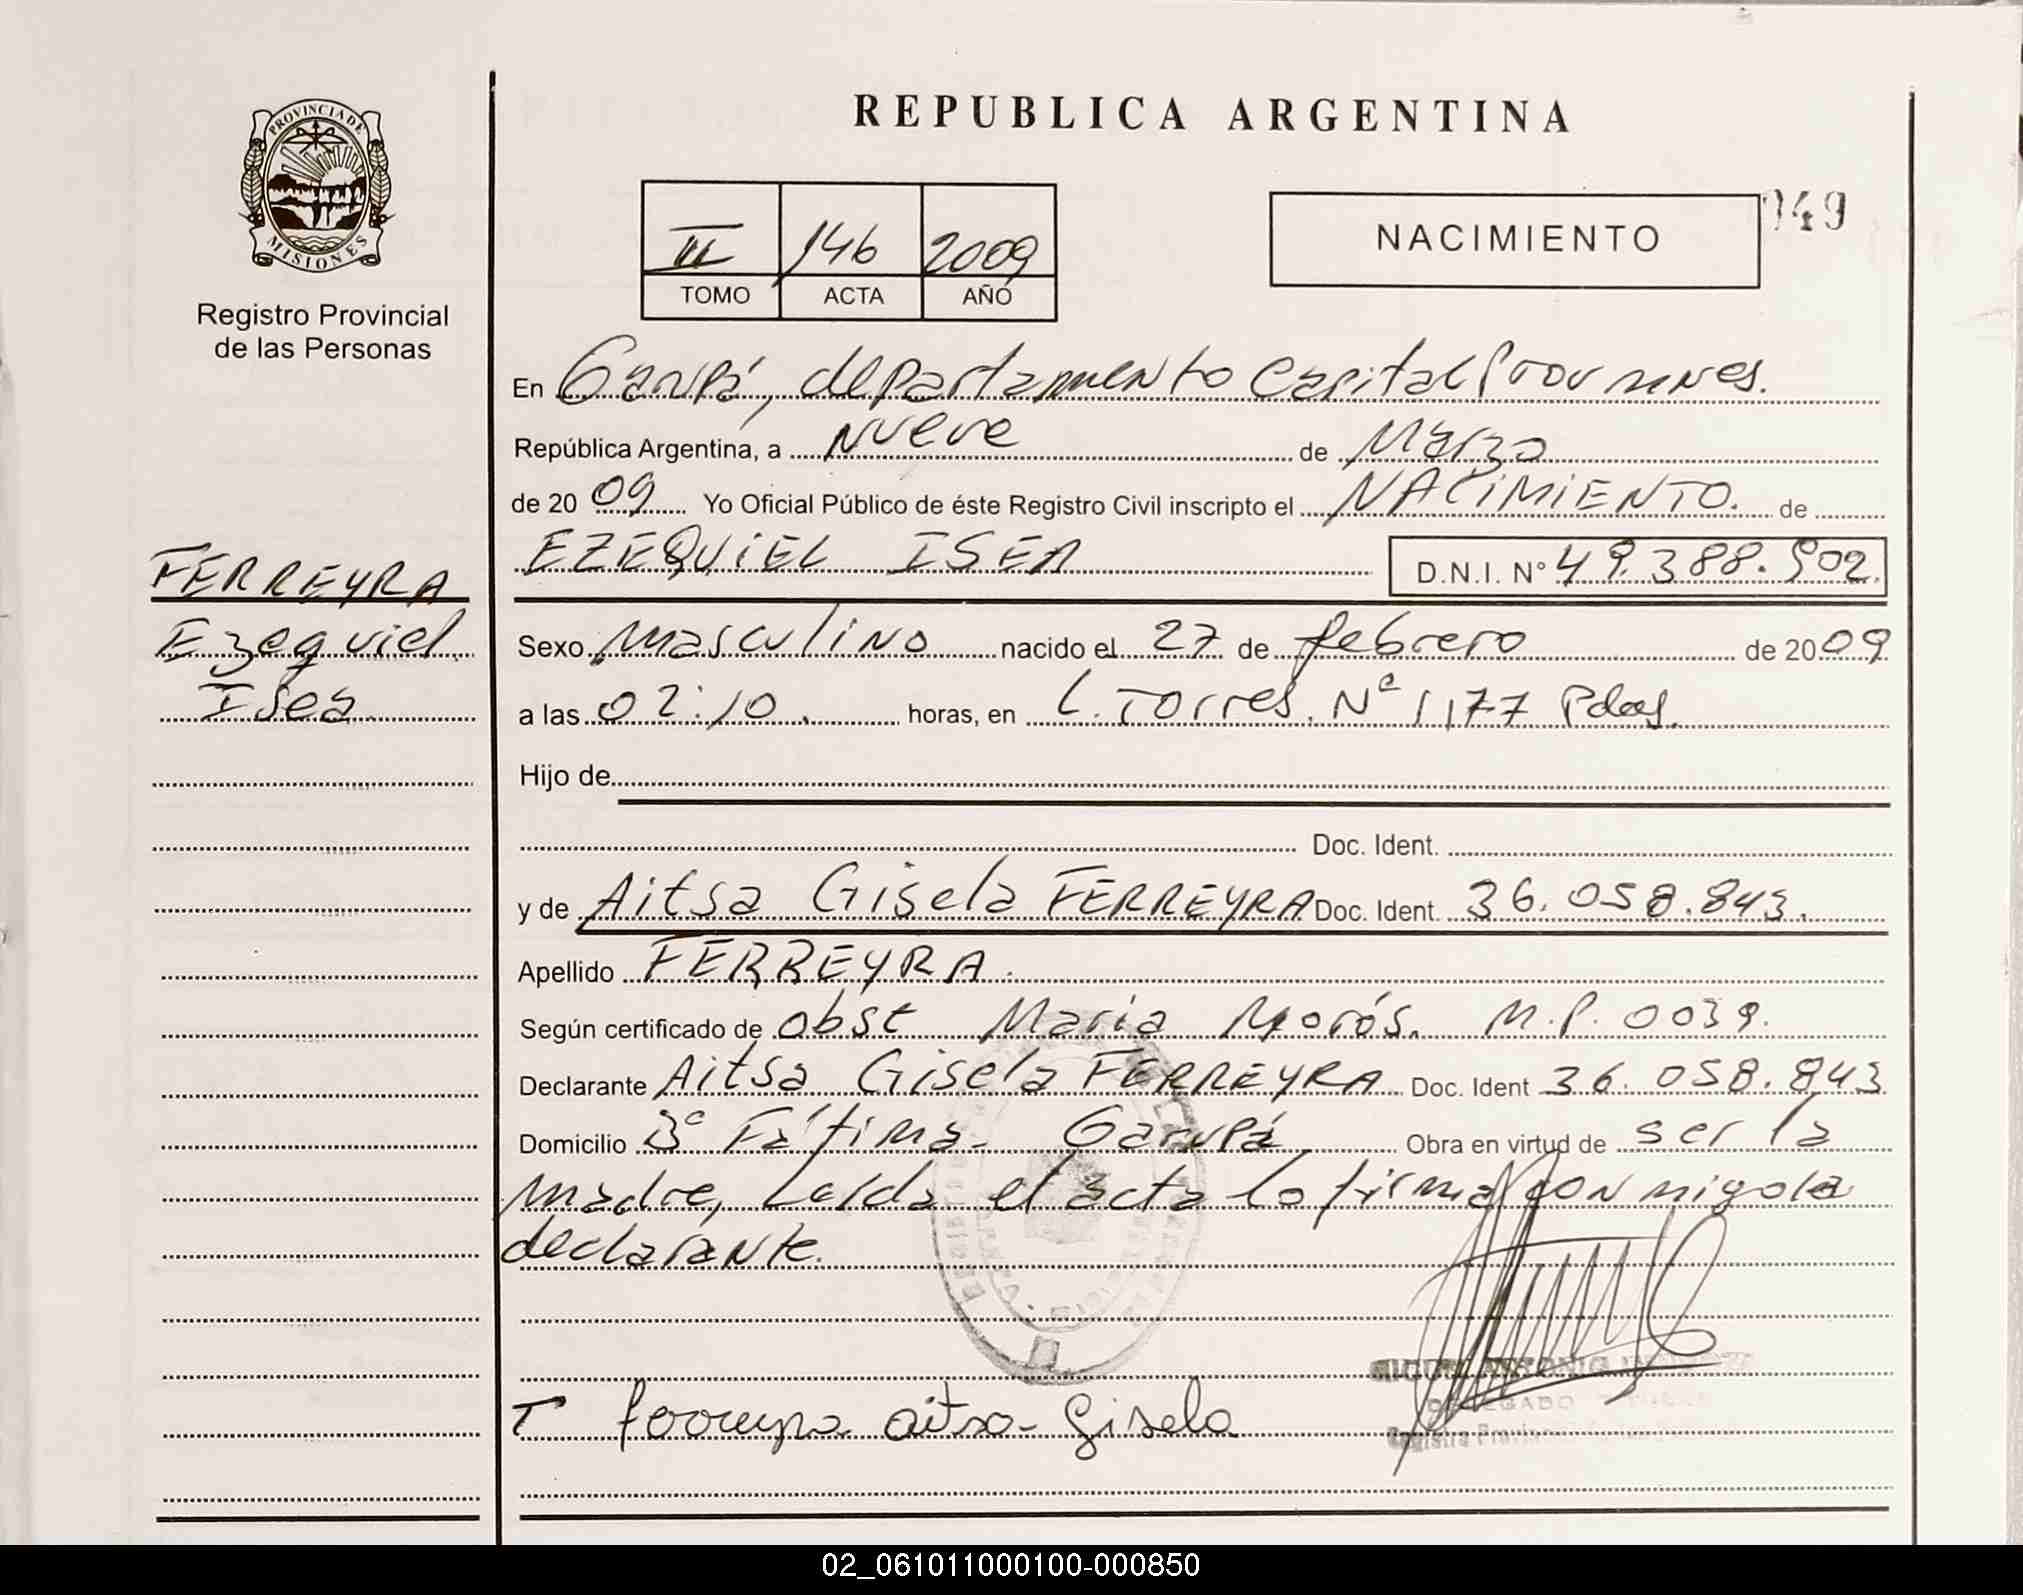 PROVINCIA DE
MISIONES
Registro Provincial
de las Personas
FERREYRA
Ezequiel
Isea
REPUBLICA ARGENTINA
II 146 2009
TOMO ACTA AÑO
NACIMIENTO
949
En Garupá, departamento Capital
República Argentina, a Nueve de Marzo
de 2009 Yo Oficial Público de éste Registro Civil inscripto el NACIMIENTO. de
EZEQUIEL ISEA D.N.I. Nº 49.388.502.
Sexo Masculino nacido el 27 de febrero de 2009
a las 02:10. horas, en L. Torres. Nº 1177 Pdas.
Hijo de
Doc. Ident.
y de Aitsa Gisela FERREYRA Doc. Ident. 36.058.843.
Apellido FERREYRA.
Según certificado de obst Maria Morós. M.P. 0039.
Declarante Aitsa Gisela FERREYRA Doc. Ident 36.058.843
Domicilio Bº Fátima. Garupá Obra en virtud de ser la
madre, Leída el acta la firma conmigo la
declarante.
ANTONIO
DELEGADO
Registro Provincial
Ferreyra aitsa Gisela
02_061011000100-000850